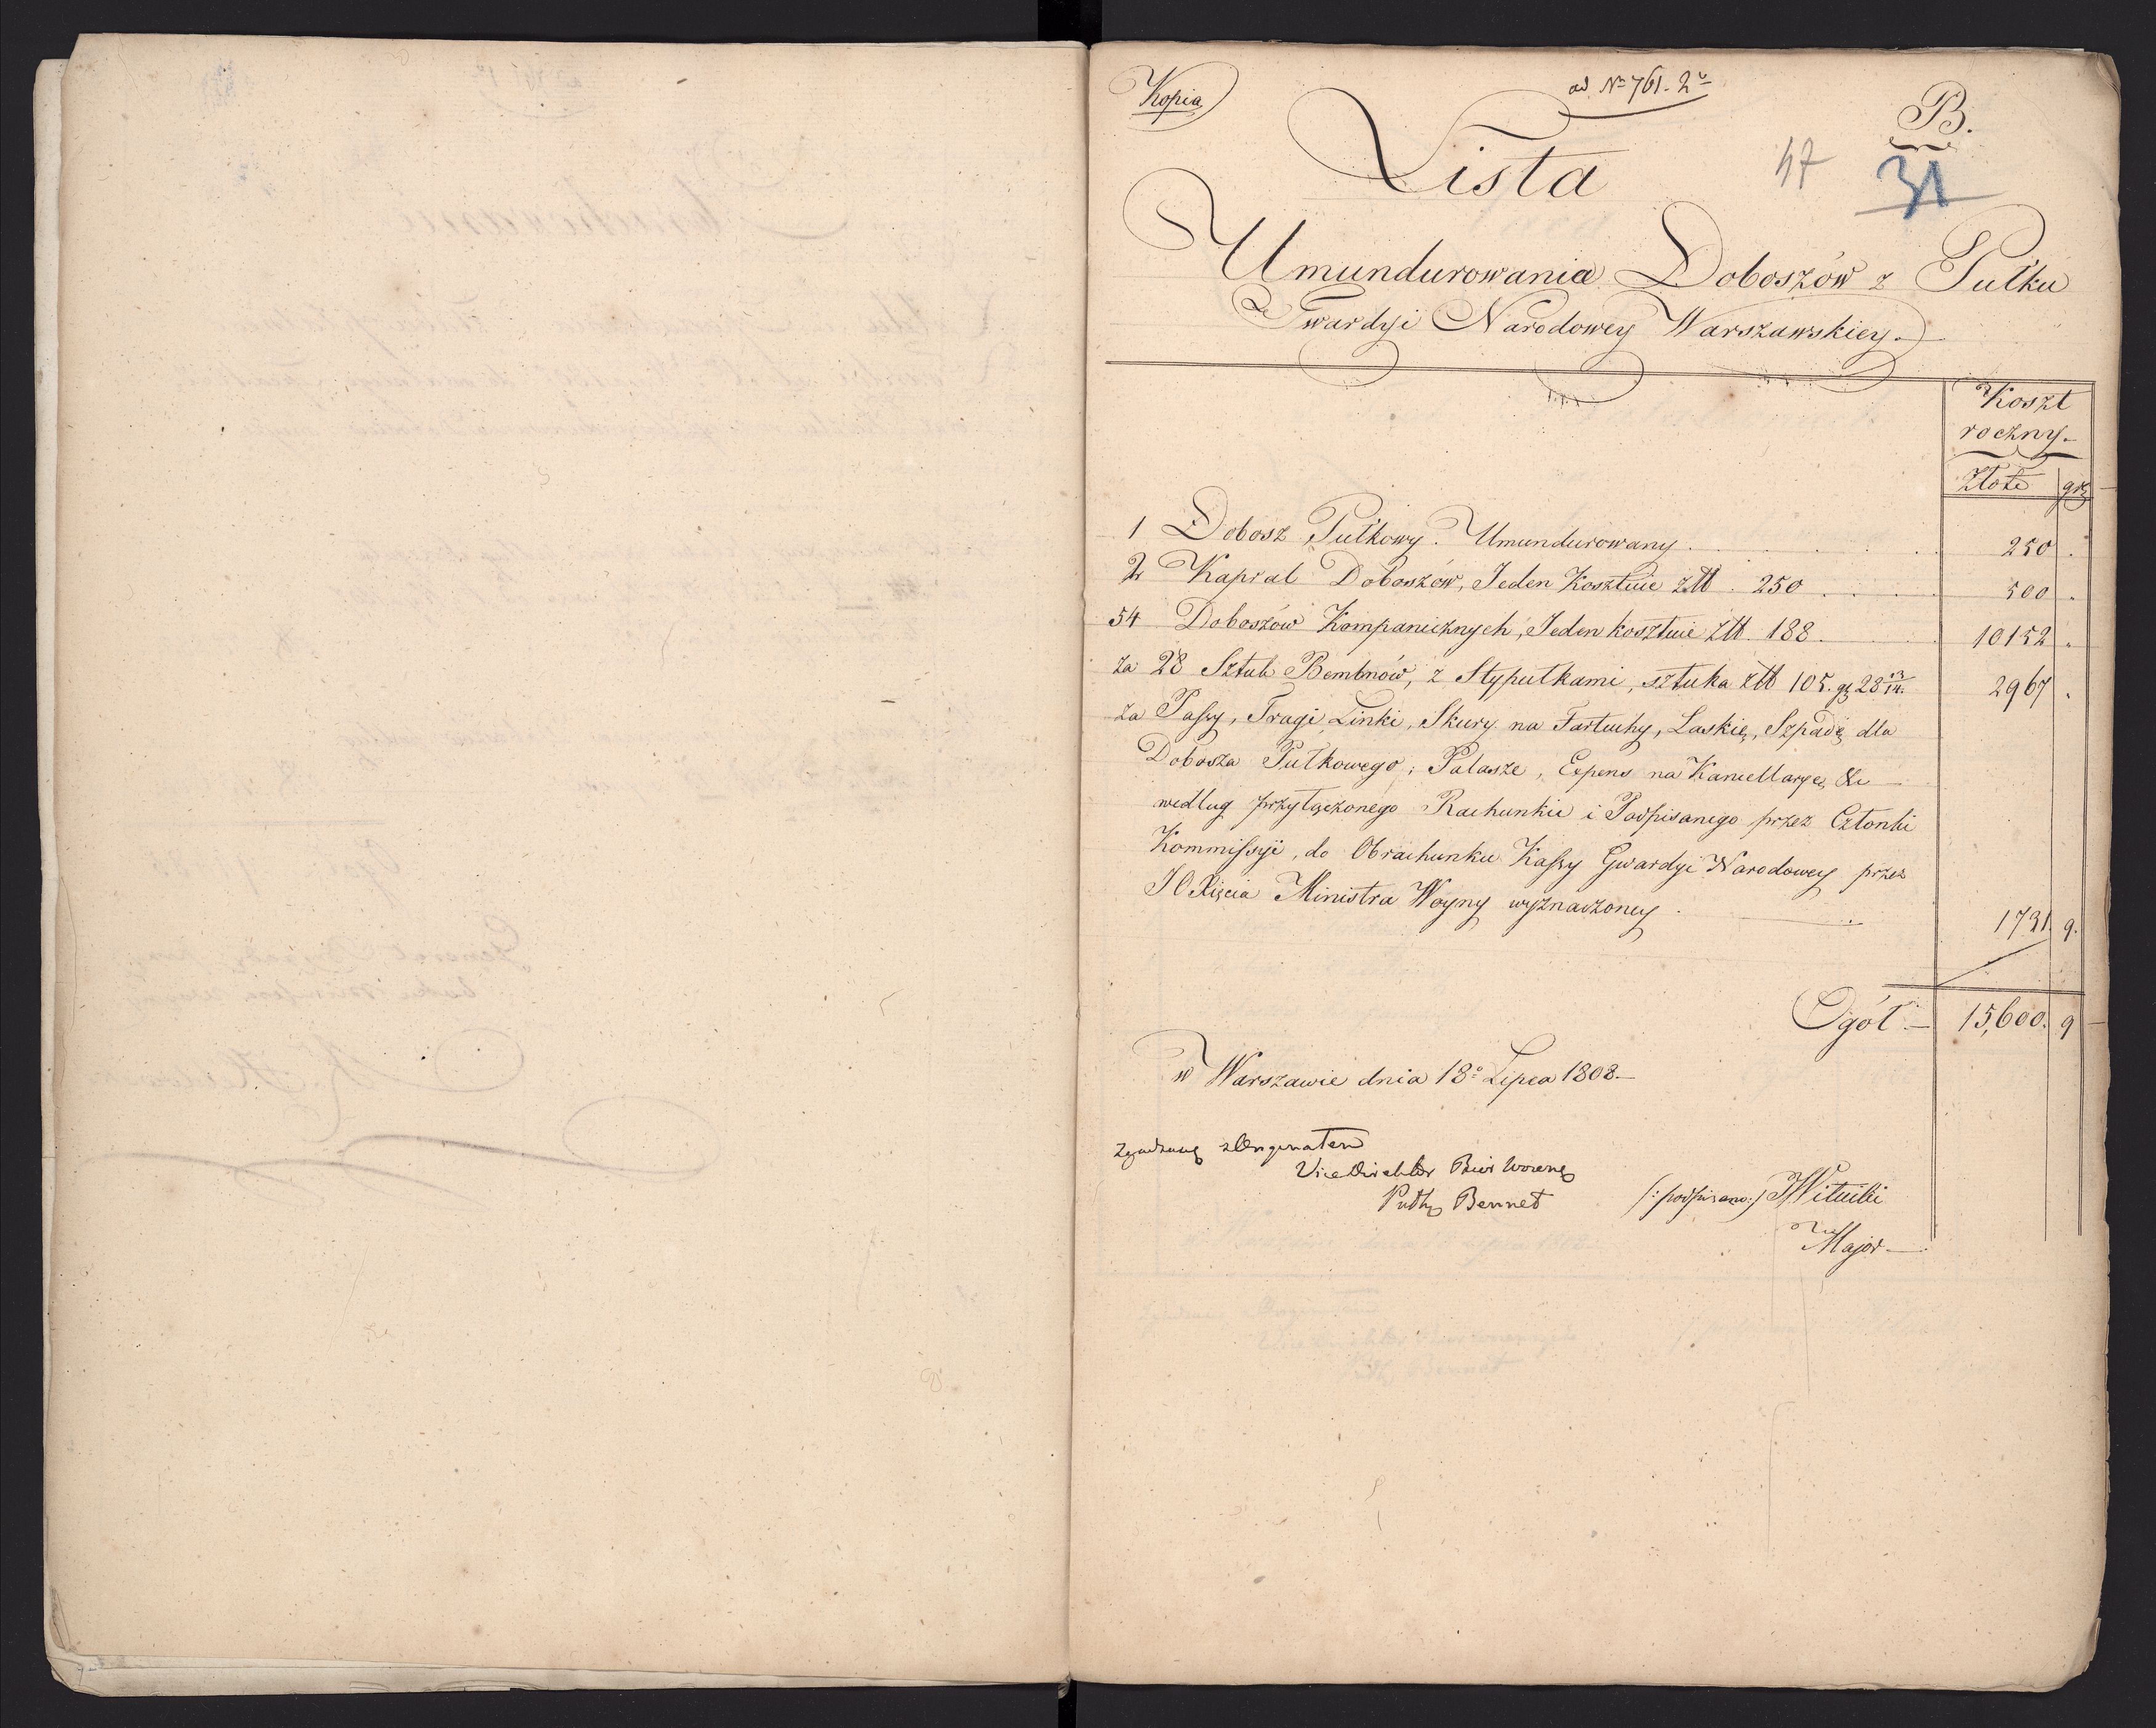 Kopia
ad No 761. 2
B.
47
31
Lista
Umundurowania Doboszów z Pułku
Gwardyi Narodowey Warszawskiey.
Koszt
roczny.
Złote grz
1 Dobosz Pułkowy. Umundurowany 250 .
2 Kapral Doboszów, Jeden Kosztuie Złł. 250 500 .
54 Doboszów Kompanicznych, Jeden kosztuie Złł 188. 10152 .
za 28 Sztuk Bembnów, z Stypułkami, sztuka Złł 105. gr 28 13/14. 2967 .
za Passy, Tragi, Linki, Skury na Fartuchy, Laskię, Szpadę dla
Dobosza Pułkowego, Pałasze, Expens na Kancellaryę, &c
według przyłączonego Rachunku i Podpisanego przez Członki
Kommissyi, do Obrachunku Kassy Gwardyi Narodowey przez
JO Xięcia Ministra Woyny wyznaczoney. 1731 9.
Ogół 15,600. 9
w Warszawie dnia 18o Lipca 1808.
Zgadzasię z Orginałem
Vice Direktor Biór Woienę
Pułk Bennet
(:podpisano:) Wituski
Major